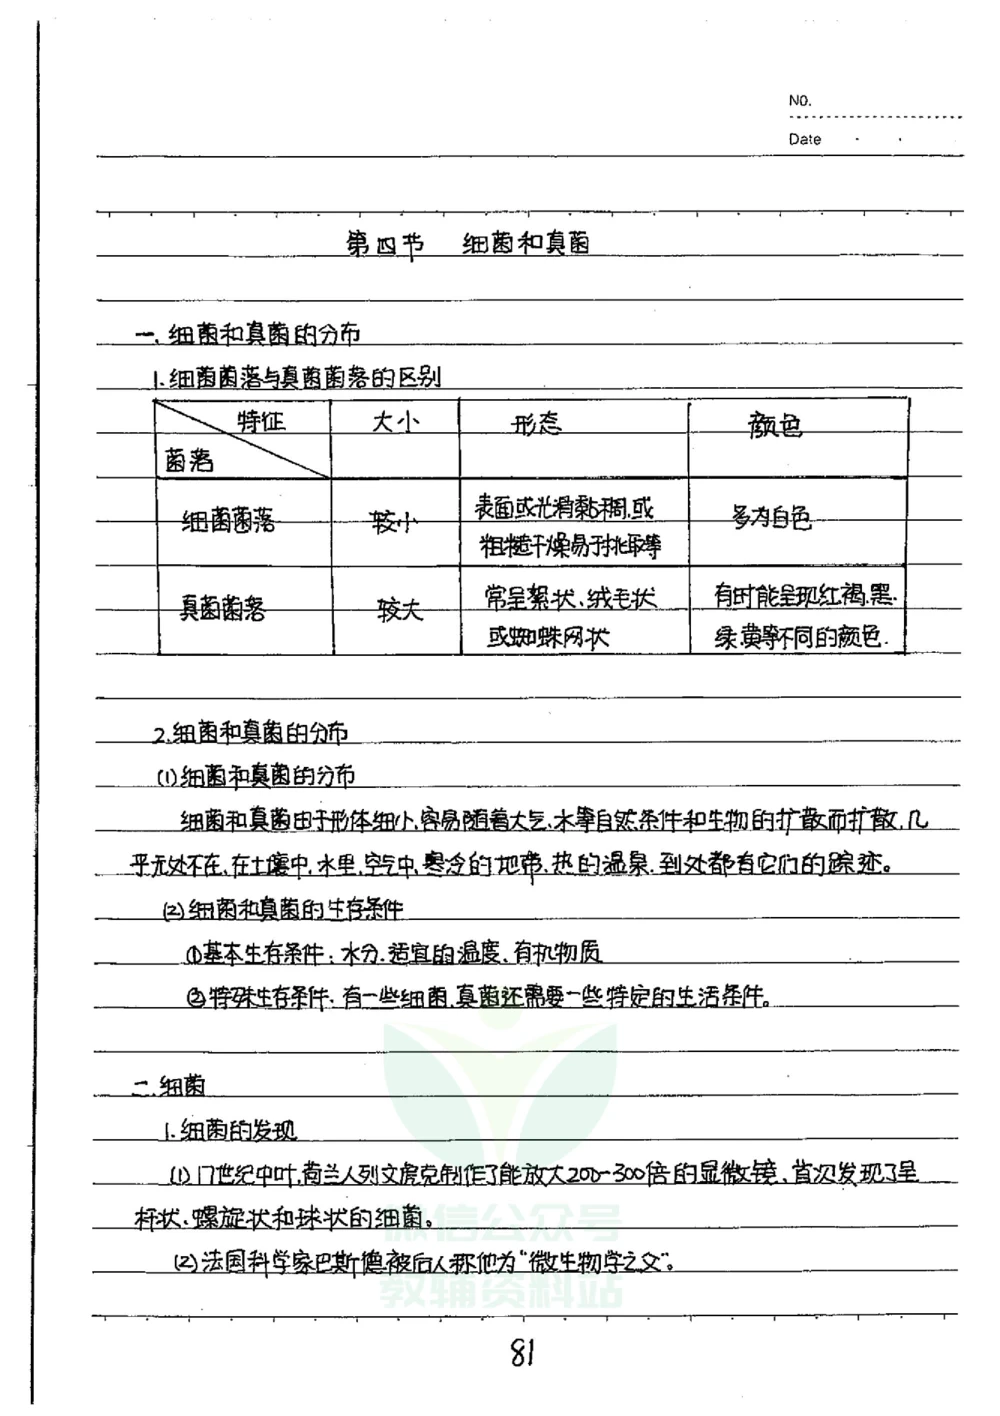 NO.
Date
第四节 细菌和真菌
一、细菌和真菌的分布
1.细菌菌落与真菌菌落的区别
特征 大小 形态 颜色
菌落
细菌菌落 较小 表面或光滑黏稠,或 多为白色
粗糙干燥易于挑取等
真菌菌落 较大 常呈絮状、绒毛状 有时能呈现红、褐、黑、
或蜘蛛网状 绿、黄等不同的颜色.
2.细菌和真菌的分布
(1)细菌和真菌的分布
细菌和真菌由于形体细小,容易随着大气、水等自然条件和生物的扩散而扩散,几
乎无处不在,在土壤中,水里,空气中,寒冷的地带,热的温泉.到处都有它们的踪迹。
(2)细菌和真菌的生存条件
①基本生存条件:水分.适宜的温度、有机物质
②特殊生存条件.有一些细菌,真菌还需要一些特定的生活条件。
二.细菌
1.细菌的发现
(1)17世纪中叶,荷兰人列文虎克制作了能放大200-300倍的显微镜、首次发现了呈
杆状、螺旋状和球状的细菌。
(2)法国科学家巴斯德被后人称他为“微生物学之父”。
微信公众号
教辅资料站
81